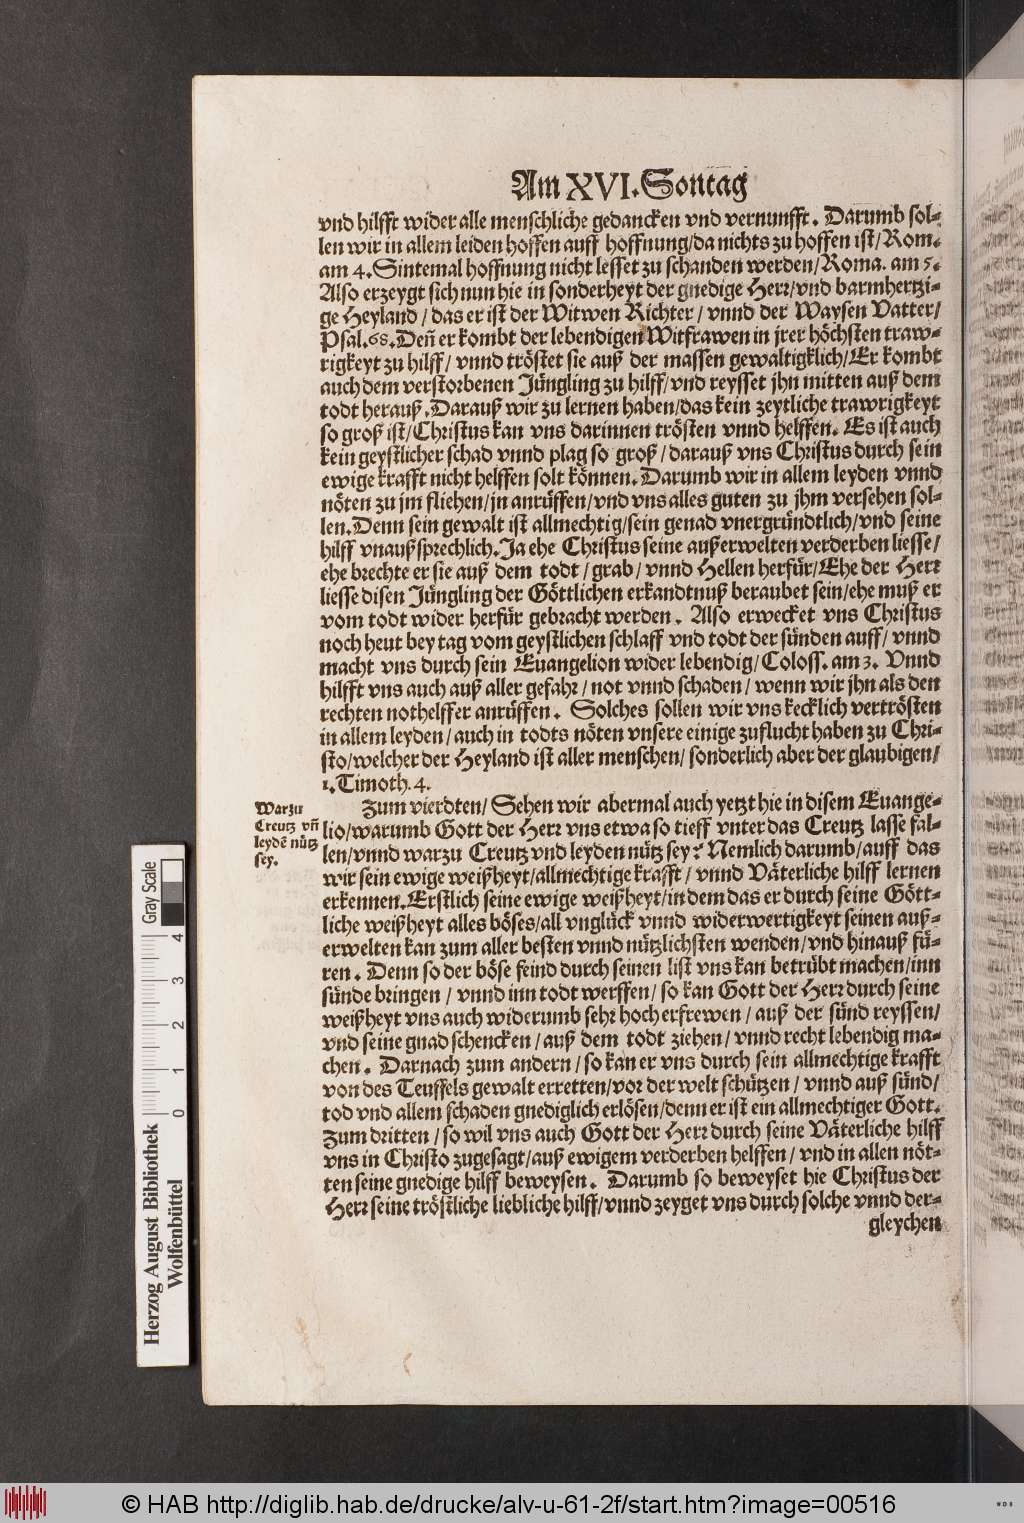 Am XVI. Sontag
vnd hilfft wider alle menschliche gedancken vnd vernunfft. Darumb sol-
len wir in allem leiden hoffen auff hoffnung/da nichts zu hoffen ist/Rom.
am 4. Sintemal hoffnung nicht lesset zu schanden werden/Roma. am 5.
Also erzeygt sich nun hie in sonderheyt der gnedige Herr/vnd barmhertzi-
ge Heyland/das er ist der Witwen Richter/vnnd der Waysen Vatter/
Psal.68. Deñ er kombt der lebendigen Witfrawen in jrer höchsten traw-
rigkeyt zu hilff/vnnd tröstet sie auß der massen gewaltigklich/Er kombt
auch dem verstorbenen Jüngling zu hilff/vnd reysset jhn mitten auß dem
todt herauß. Darauß wir zu lernen haben/das kein zeytliche trawrigkeyt
so groß ist/Christus kan vns darinnen trösten vnnd helffen. Es ist auch
kein geystlicher schad vnnd plag so groß/darauß vns Christus durch sein
ewige krafft nicht helffen solt können. Darumb wir in allem leyden vnnd
nöten zu jm fliehen/jn anrüffen/vnd vns alles guten zu jhm versehen sol-
len. Denn sein gewalt ist allmechtig/sein genad vnergründtlich/vnd seine
hilff vnaußsprechlich. Ja ehe Christus seine außerwelten verderben liesse/
ehe brechte er sie auß dem todt/grab/vnnd Hellen herfür/Ehe der Herr
liesse disen Jüngling der Göttlichen erkandtnuß beraubet sein/ehe muß er
vom todt wider herfür gebracht werden. Also erwecket vns Christus
noch heut bey tag vom geystlichen schlaff vnd todt der sünden auff/vnnd
macht vns durch sein Euangelion wider lebendig/Coloss. am 3. Vnnd
hilfft vns auch auß aller gefahr/not vnnd schaden/wenn wir jhn als den
rechten nothelffer anrüffen. Solches sollen wir vns kecklich vertrösten
in allem leyden/auch in todts nöten vnsere einige zuflucht haben zu Chri-
sto/welcher der Heyland ist aller menschen/sonderlich aber der glaubigen/
1. Timoth. 4.
Warzu
Creutz vñ
leydē nütz
sey.
Zum vierdten/Sehen wir abermal auch yetzt hie in disem Euange-
lio/warumb Gott der Herr vns etwa so tieff vnter das Creutz lasse fal-
len/vnnd warzu Creutz vnd leyden nütz sey? Nemlich darumb/auff das
wir sein ewige weißheyt/allmechtige krafft/vnnd Väterliche hilff lernen
erkennen. Erstlich seine ewige weißheyt/in dem das er durch seine Gött-
liche weißheyt alles böses/all vnglück vnnd widerwertigkeyt seinen auß-
erwelten kan zum aller besten vnnd nützlichsten wenden/vnd hinauß fü-
ren. Denn so der böse feind durch seinen list vns kan betrübt machen/inn
sünde bringen/vnnd inn todt werffen/so kan Gott der Herr durch seine
weißheyt vns auch widerumb sehr hoch erfrewen/auß der sünd reyssen/
vnd seine gnad schencken/auß dem todt ziehen/vnnd recht lebendig ma-
chen. Darnach zum andern/so kan er vns durch sein allmechtige krafft
von des Teuffels gewalt erretten/vor der welt schützen/vnnd auß sünd/
tod vnd allem schaden gnediglich erlösen/denn er ist ein allmechtiger Gott.
Zum dritten/so wil vns auch Gott der Herr durch seine Väterliche hilff
vns in Christo zugesagt/auß ewigem verderben helffen/vnd in allen nöt-
ten seine gnedige hilff beweysen. Darumb so beweyset hie Christus der
Herr seine tröstliche liebliche hilff/vnnd zeyget vns durch solche vnnd der-
gleychen
Gray Scale
4
3
2
1
0
Herzog August Bibliothek
Wolfenbüttel
© HAB http://diglib.hab.de/drucke/alv-u-61-2f/start.htm?image=00516
WDB